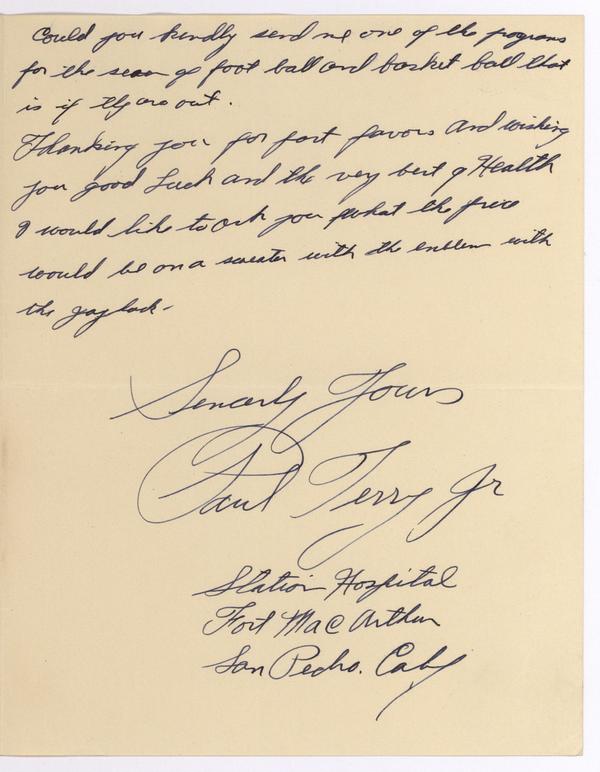 Could you kindly send me one of the programs
for the season of foot ball and basket ball that
is if they are out.
Thanking you for past favors And wishing
you good Luck and the very best of Health
I would like to ask you what the price
would be on a sweater with the emblem with
the
Sincerly Yours
Paul Terry Jr
Station Hospital
Fort MacArthur
San Pedro. Calif